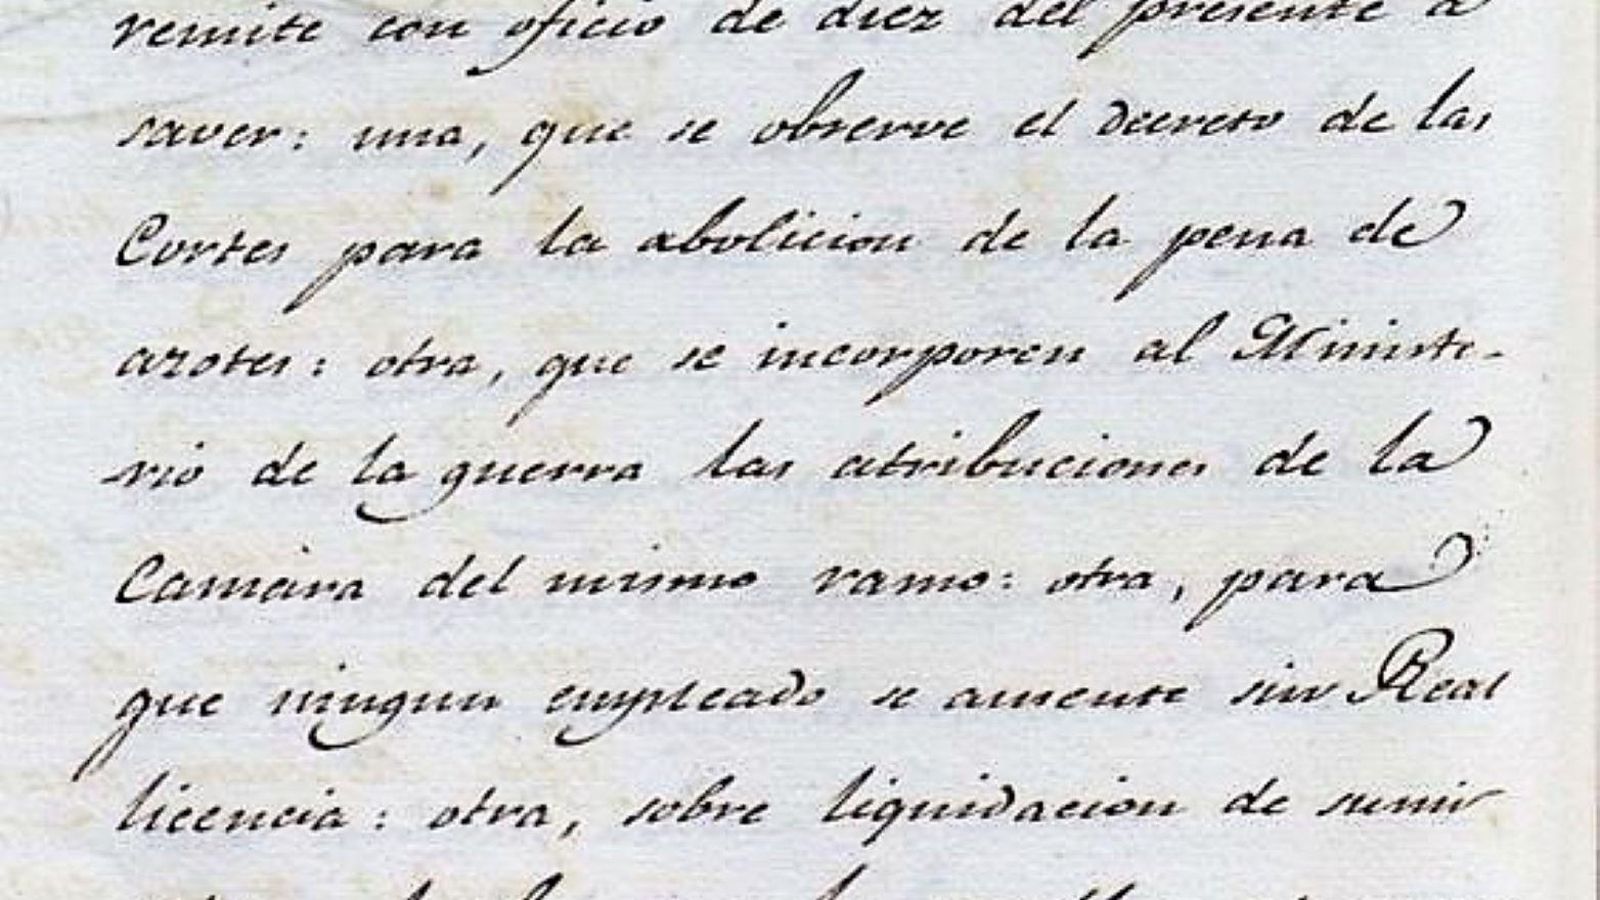 remite con oficio de diez del presente a
saver: una, que se observe el decreto de las
Cortes para la abolicion de la pena de
azotes: otra, que se incorporen al Ministe-
rio de la guerra las atribuciones de la
Camára del mismo ramo: otra, para
que ningun empleado se ausente sin Real
licencia: otra, sobre liquidacion de sumi